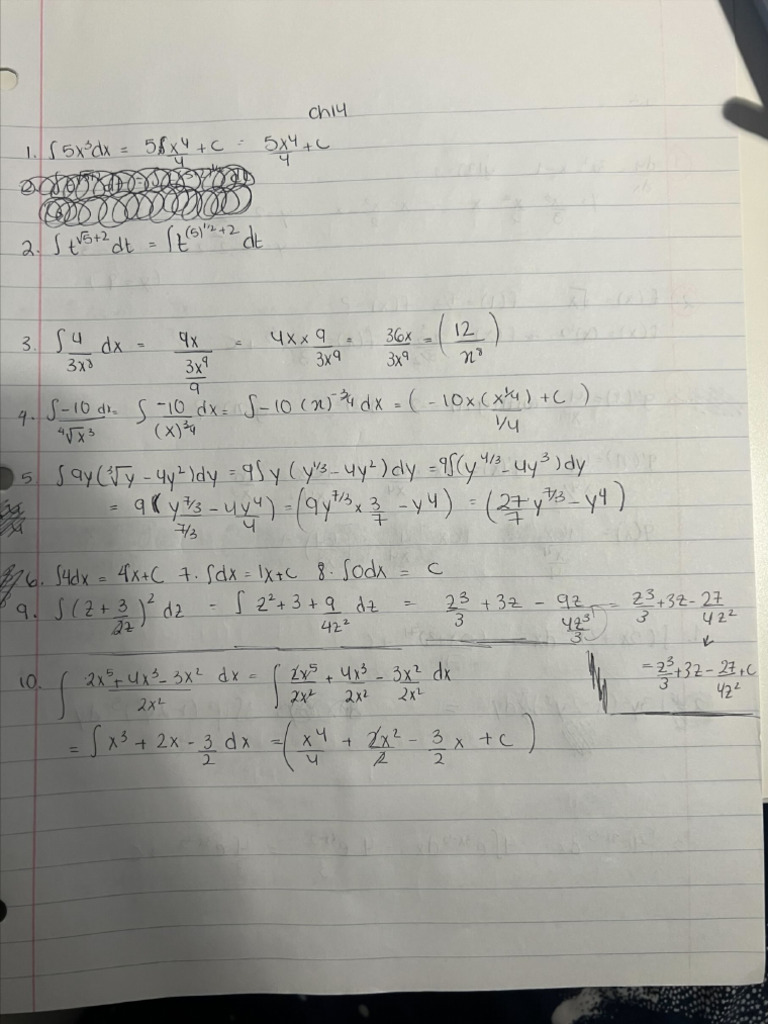 Ch14
1. ∫5x³dx = 5x⁴/4 + C = 5x⁴/4 + C
2. ∫t^(√5+2) dt = ∫t^((5)^(1/2)+2) dt
3. ∫4/(3x⁸) dx = 4x/(3x⁹/9) = 4x × 9/(3x⁹) = 36x/(3x⁹) = (12/x⁸)
4. ∫-10/(⁴√x³) dx = ∫-10/(x)^(3/4) dx = ∫-10(x)^(-3/4) dx = (-10x(x^(1/4))/(1/4) + C)
5 ∫9y(³√y - 4y²)dy = 9∫y(y^(1/3) - 4y²)dy = 9∫(y^(4/3) - 4y³)dy
= 9(y^(7/3)/(7/3) - 4y⁴/4) = (9y^(7/3) × 3/7 - y⁴) = (27/7 y^(7/3) - y⁴)
6. ∫4dx = 4x+C 7. ∫dx = 1x+C 8. ∫0dx = C
9. ∫(z + 3/2z)² dz = ∫z² + 3 + 9/4z² dz = z³/3 + 3z - 9z/(4z³/3) = z³/3 + 3z - 27/4z²
= z³/3 + 3z - 27/4z² + C
10. ∫(2x⁵ + 4x³ - 3x²)/2x² dx = ∫2x⁵/2x² + 4x³/2x² - 3x²/2x² dx
= ∫x³ + 2x - 3/2 dx = (x⁴/4 + 2x²/2 - 3/2 x + C)